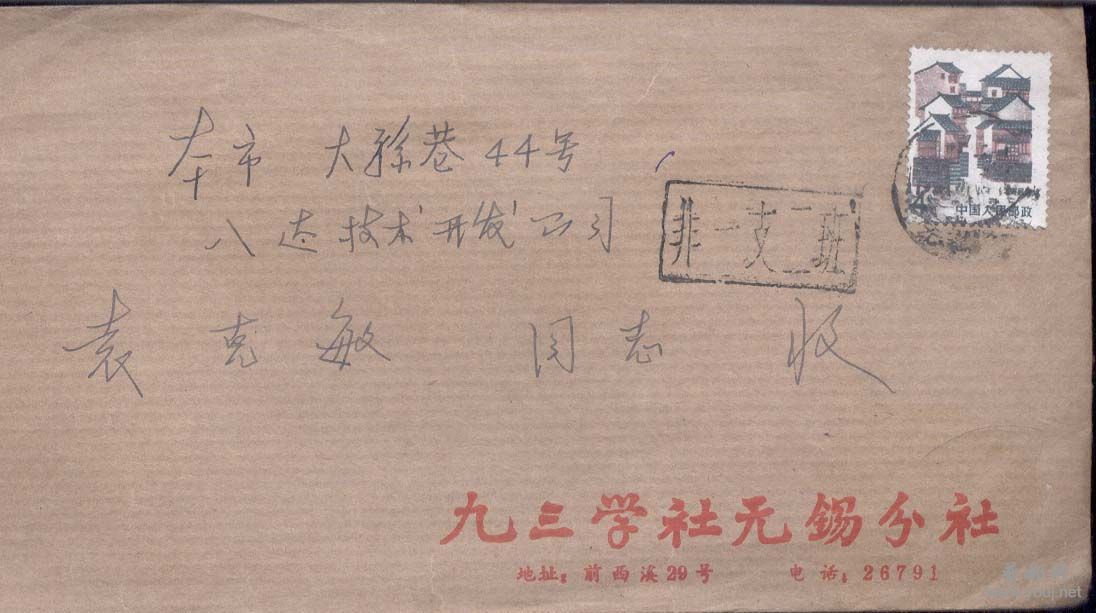 本市 大孙巷44号
八达技术开发公司
非一支二班
4 中国人民邮政
袁克敏 同志 收
九三学社无锡分社
地址：前西溪29号 电话：26791